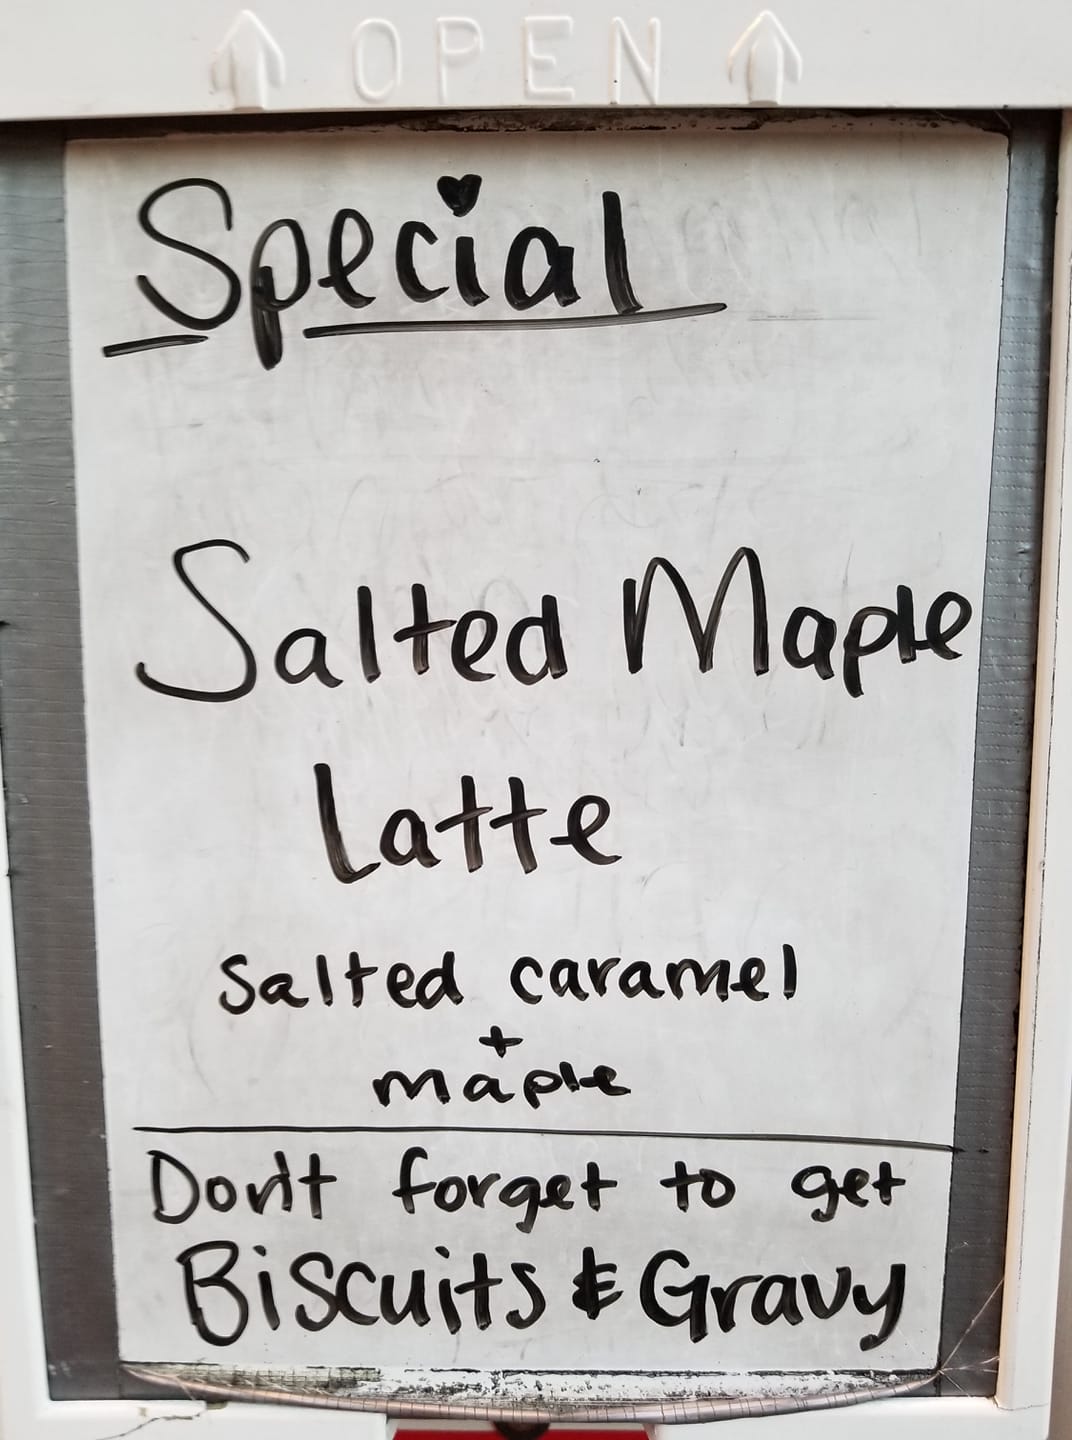 OPEN
Special
Salted Maple
Latte
Salted caramel
+
maple
Don't forget to get
Biscuits & Gravy